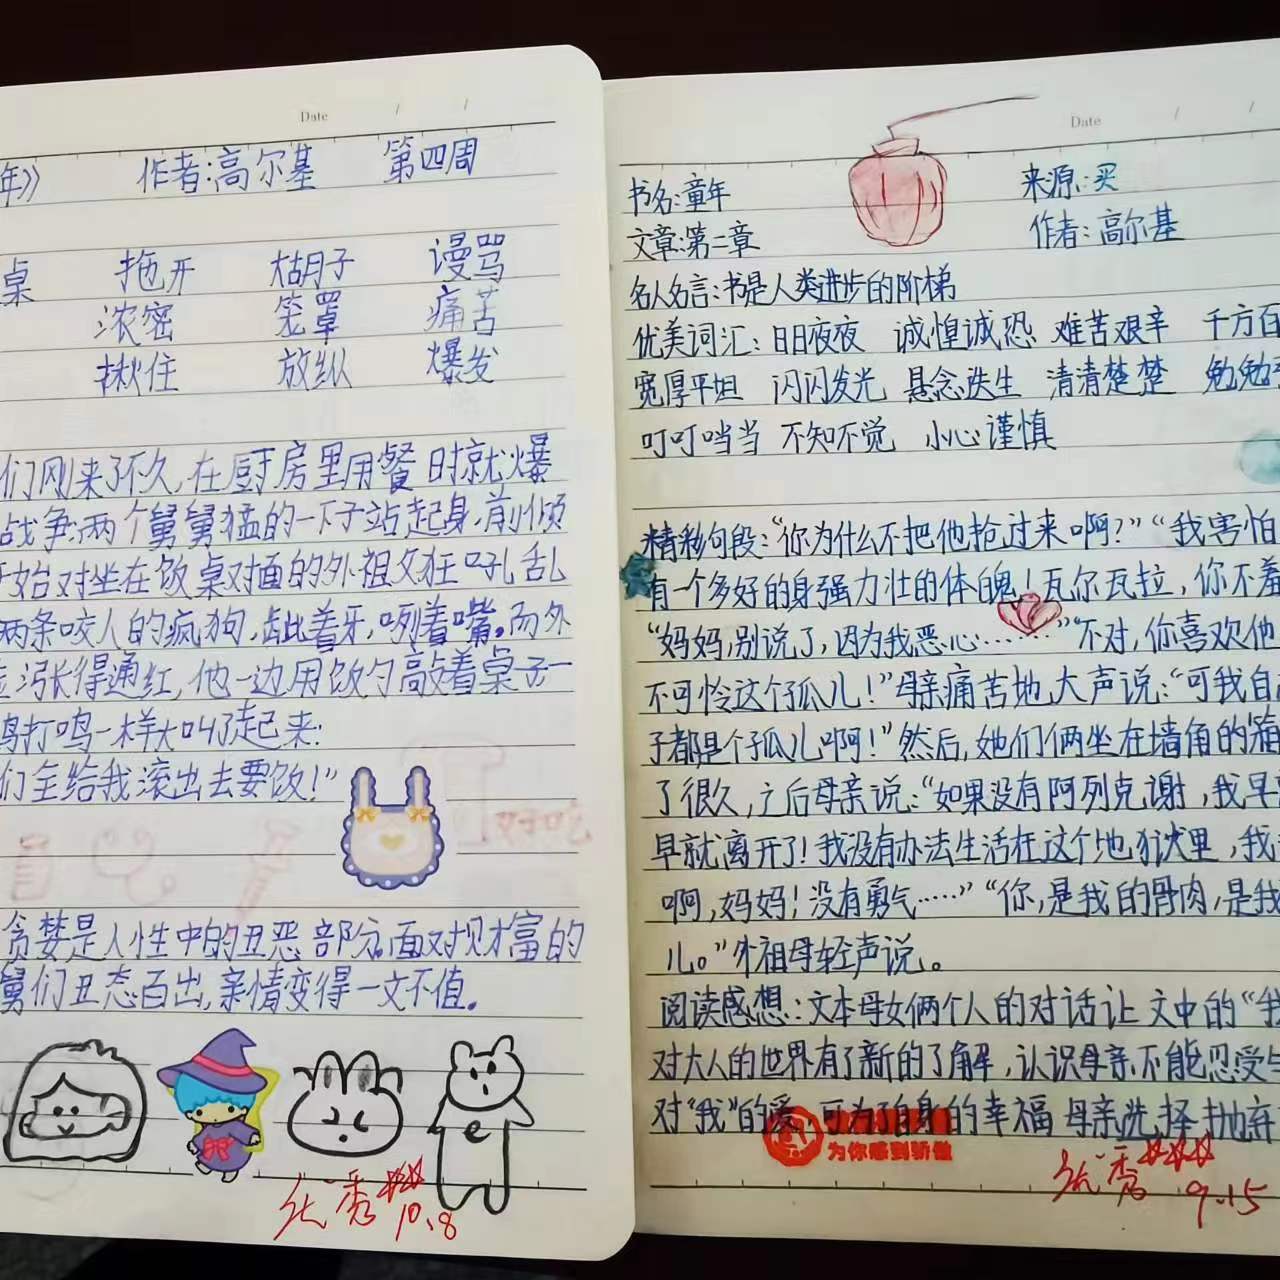 Date / /
年》 作者:高尔基 第四周
桌 拖开 胡子 谩骂
浓密 笼罩 痛苦
揪住 放纵 爆发
们刚来了不久,在厨房里用餐时就爆
战争:两个舅舅猛的一下子站起身,前倾
开始对坐在饭桌对面的外祖父狂吼乱
两条咬人的疯狗,龇着牙,咧着嘴。而外
涨得通红,他一边用饭勺敲着桌子一
鸡打鸣一样大叫了起来:
们全给我滚出去要饭!”
好吃
贪婪是人性中的丑恶部分。面对财富的
舅们丑态百出,亲情变得一文不值。
优秀
10.8
Date / /
书名:童年 来源:买
文章:第二章 作者:高尔基
名人名言:书是人类进步的阶梯
优美词汇:日日夜夜 诚惶诚恐 难苦艰辛 千方百
宽厚平坦 闪闪发光 悬念迭生 清清楚楚 勉勉
叮叮当当 不知不觉 小心谨慎
精彩句段:“你为什么不把他抢过来啊?”“我害怕
有一个多好的身强力壮的体魄!瓦尔瓦拉,你不羞
“妈妈,别说了,因为我恶心……”“不对,你喜欢他
不可怜这个孤儿!”母亲痛苦地大声说:“可我自己
子都是个孤儿啊!”然后,她们俩坐在墙角的箱
了很久,之后母亲说:“如果没有阿列克谢,我早
早就离开了!我没有办法生活在这个地狱里,我
啊,妈妈!没有勇气……”“你,是我的骨肉,是我
儿。”外祖母轻声说。
阅读感想:文本母女俩个人的对话让文中的“我
对大人的世界有了新的了解,认识母亲不能忍受与
对“我”的爱,可为了自身的幸福母亲选择抛弃
为你感到骄傲
优秀
9.15